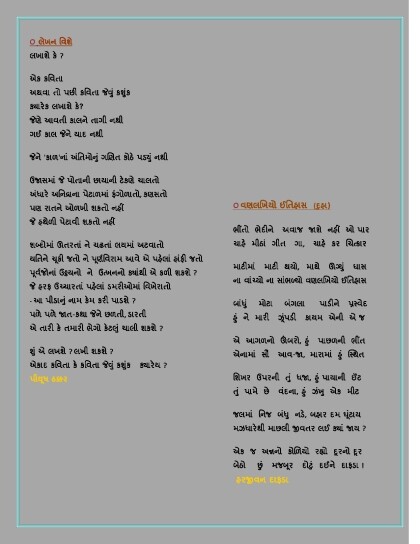 O લેખન વિશે
લખાશે કે ?
એક કવિતા
અથવા તો પછી કવિતા જેવું કશુંક
ક્યારેક લખાશે કે?
જેણે આવતી કાલને તાગી નથી
ગઈ કાલ જેને યાદ નથી
જેને 'કાળ'નાં અંતિમોનું ગણિત કોઠે પડ્યું નથી
ઉજાસમાં જે પોતાની છાયાની ટેકણે ચાલતો
અંધારે અનિદ્રાના પેટાળમાં ફંગોળાતો, કણસતો
પણ રાતને ઓળખી શકતો નહીં
જે હથેળી પેટાવી શકતો નહીં
શબ્દોમાં ઊતરતાં ને ચઢતાં લથમાં અટવાતો
યતિને ચૂકી જતો ને પૂર્ણવિરામ આવે એ પહેલાં હાંફી જતો
પૂર્વજોનાં ઉદ્દયનો ને ઉત્ખનનો ક્યાંથી એ કળી શકશે ?
જે હરફ ઉચ્ચારતાં પહેલાં ડમરીઓમાં વિખેરાતો
- આ પીડાનું નામ કેમ કરી પાડશે ?
પળે પળે જાત-કથા જેને છળતી, ડારતી
એ તારી કે તમારી ભેગો કેટલું ચાલી શકશે ?
શું એ લખશે ? લખી શકશે ?
એકાદ કવિતા કે કવિતા જેવું કશુંક ક્યારેય ?
પીયૂષ ઠક્કર
O વણલખિયો ઈતિહાસ (દુહા)
ભીંતો ભેદીને અવાજ જાશે નહીં ઓ પાર
ચાહે મીઠાં ગીત ગા, ચાહે કર ચિત્કાર
માટીમાં માટી થયો, માથે ઊગ્યું ઘાસ
ના વાંચ્યો ના સાંભળ્યો વણલખિયો ઈતિહાસ
બાંધું મોટા બંગલા પાડીને પ્રસ્વેદ
હું ને મારી ઝૂંપડી કાયમ એની એ જ
એ આગળનો ઊંબરો, હું પાછળની ભીંત
એનામાં સૌ આવ-જા, મારામાં હું સ્થિત
શિખર ઉપરની તું ધજા, હું પાયાની ઈંટ
તું પામે છે વંદના, હું ઝંખું એક મીટ
જલમાં નિજ બંધુ નડે, બહાર દમ ઘૂંટાય
મઝધારેથી માછલી જીવતર લઈ ક્યાં જાય ?
એક જ અન્નનો કોળિયો રહ્યો દૂરનો દૂર
બેઠો છું મજબૂર દોઢું દઈને દાફડા !
હરજીવન દાફડા